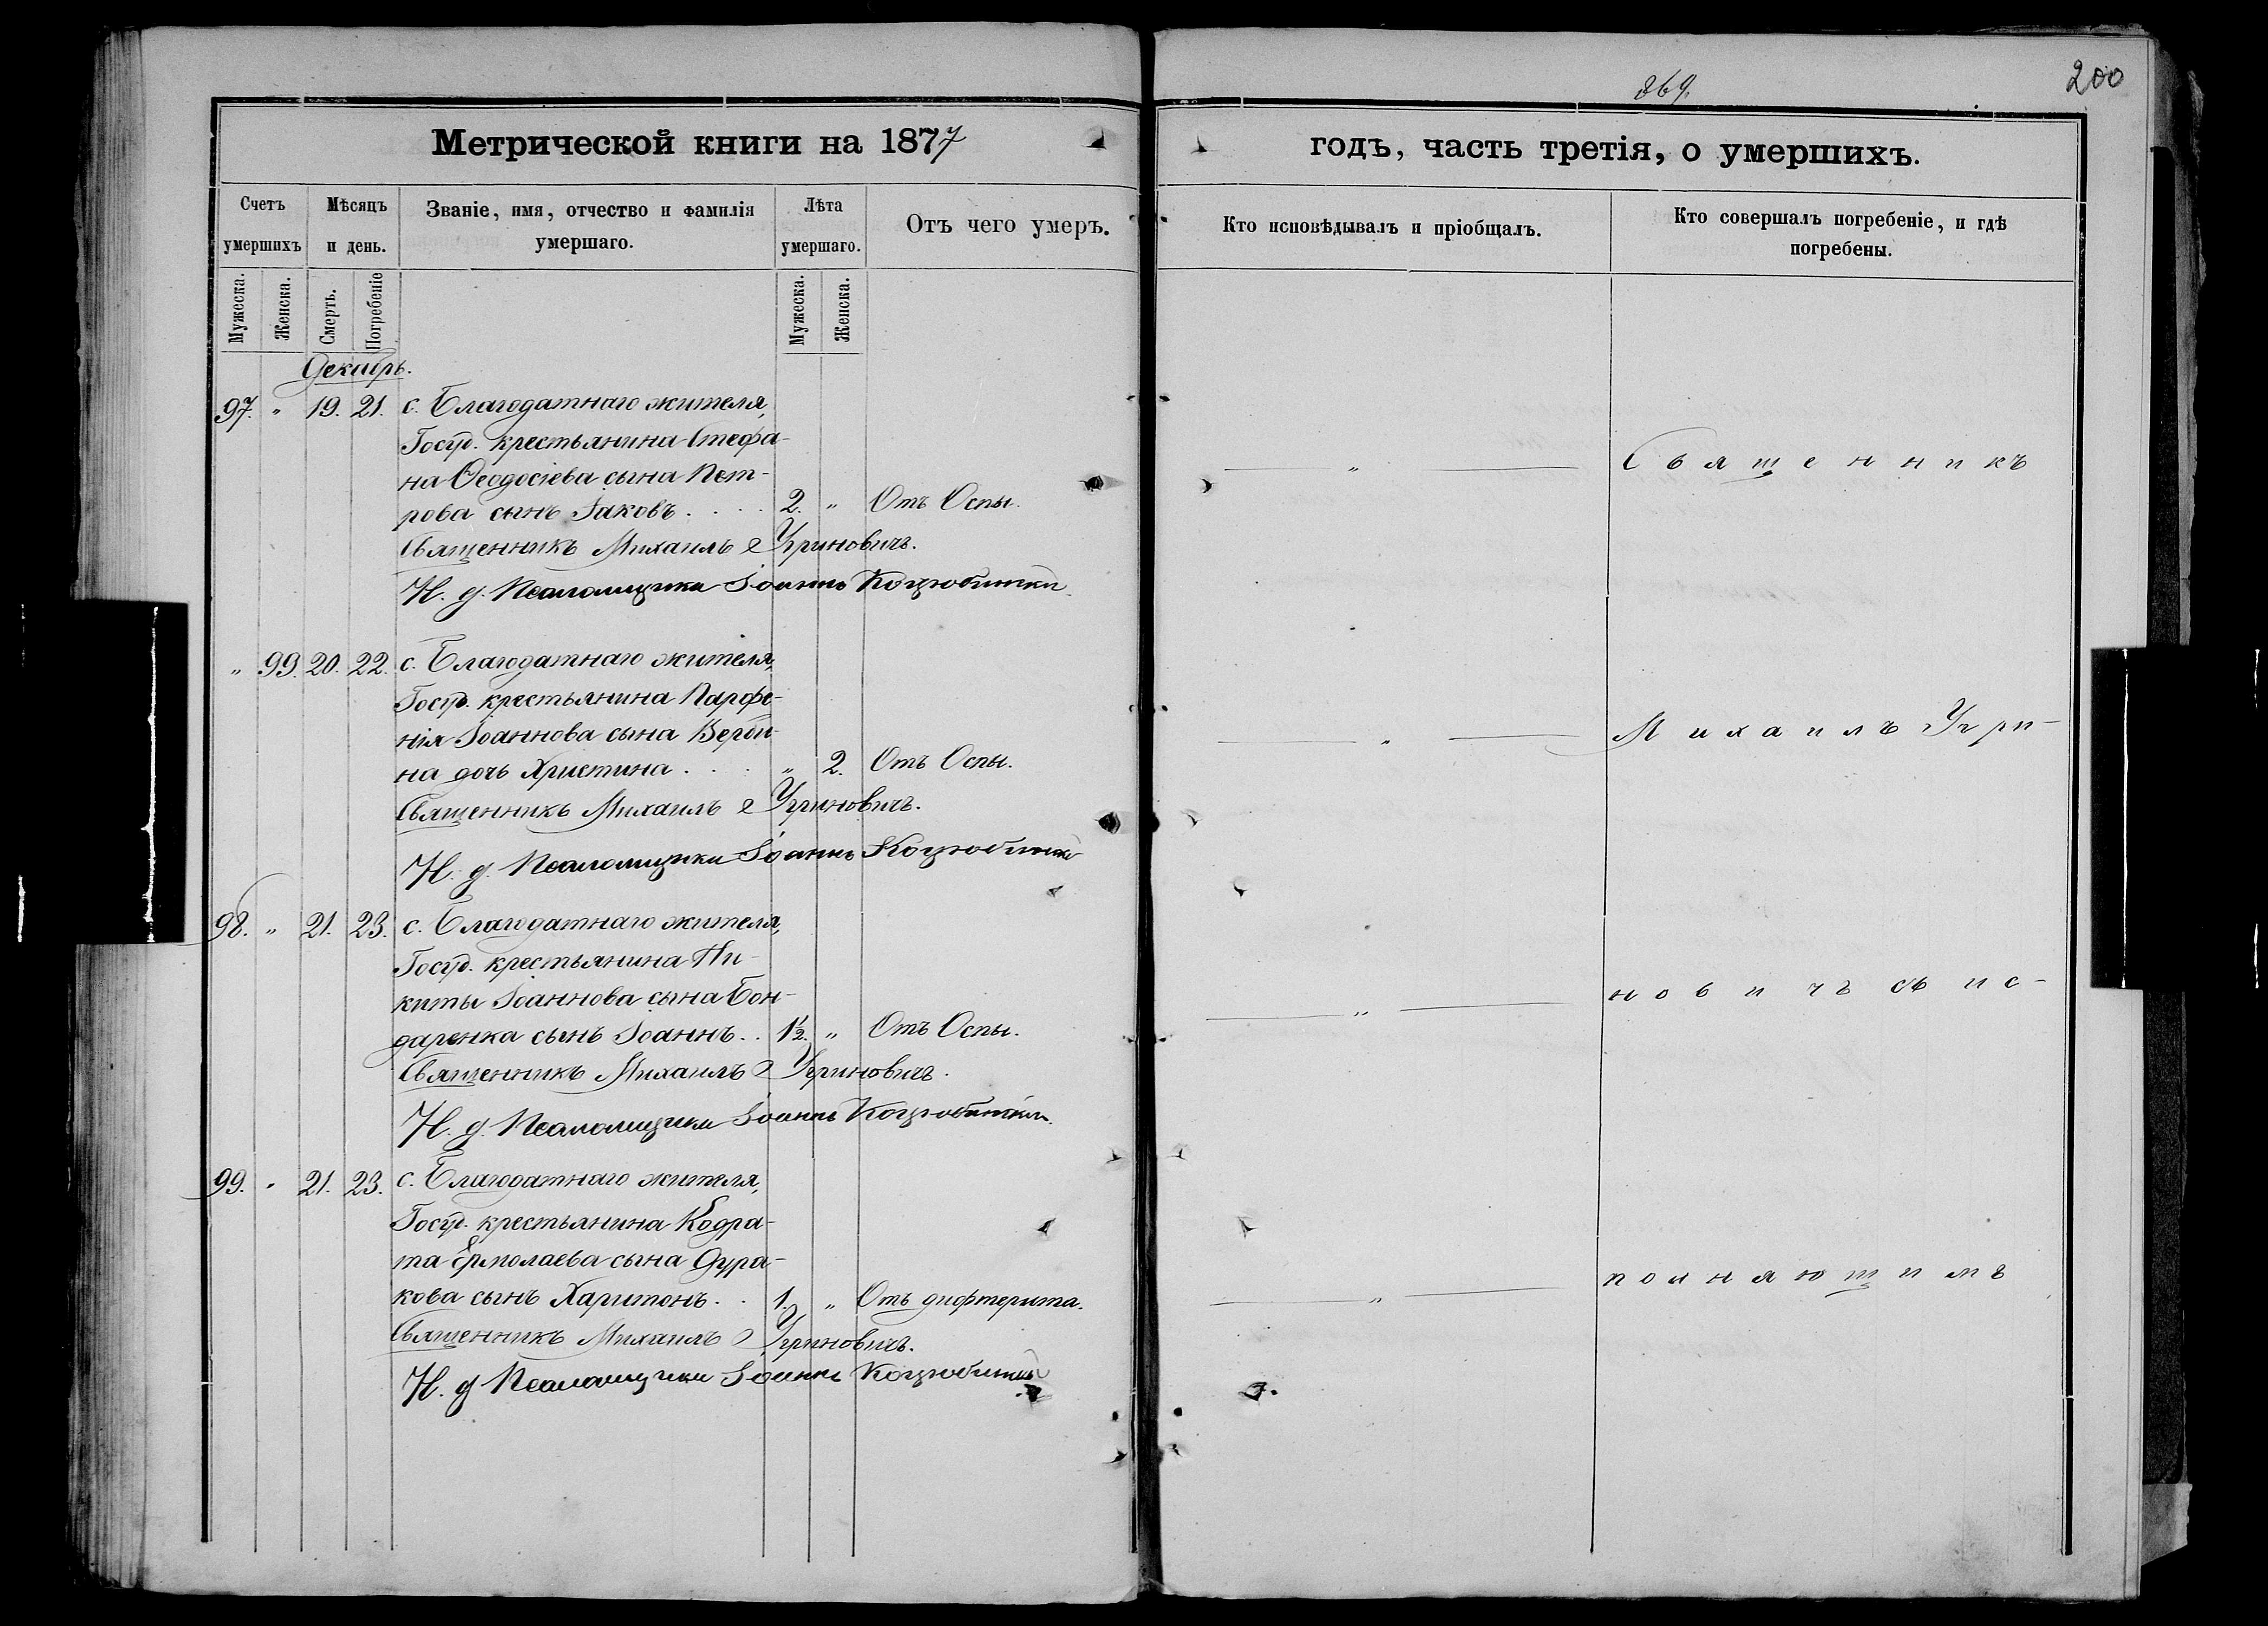 869.
200
Метрической книги на 1877
годъ, часть третія, о умершихъ.
Счетъ умершихъ
Мѣсяцъ и день.
Званіе, имя, отчество и фамилія умершаго.
Лѣта умершаго.
Отъ чего умеръ.
Кто исповѣдывалъ и пріобщалъ.
Кто совершалъ погребеніе, и гдѣ погребены.
Мужеска.
Женска.
Смерть.
Погребеніе
Мужеска.
Женска.
Декабрь.
97. " 19. 21. с. Благодатнаго жителя,
Госуд. крестьянина Стефа-
на Ѳеодосіева сына Пет-
рова сынъ Іаковъ . . . . 2. " Отъ Оспы.
Священникъ Михаилъ Угриновичъ.
И. д. Псаломщика Іоаннъ Коцюбинскій
" 99. 20. 22. с. Благодатнаго жителя,
Госуд. крестьянина Парфе-
нія Іоаннова сына Верби-
на дочь Христина . . . " 2. Отъ Оспы.
Священникъ Михаилъ Угриновичъ.
И. д. Псаломщика Іоаннъ Коцюбинскій
98. " 21. 23. с. Благодатнаго жителя,
Госуд. крестьянина Ни-
киты Іоаннова сына Бон-
даренка сынъ Іоаннъ . . 1½. " Отъ Оспы.
Священникъ Михаилъ Угриновичъ.
И. д. Псаломщика Іоаннъ Коцюбинскій
99. " 21. 23. с. Благодатнаго жителя,
Госуд. крестьянина Кодра-
та Ермолаева сына Дура-
кова сынъ Харитонъ . . 1. " Отъ дифтерита.
Священникъ Михаилъ Угриновичъ.
И. д. Псаломщика Іоаннъ Коцюбинскій
" Священникъ
" Михаилъ Угри-
" новичъ съ ис-
" полняющимъ